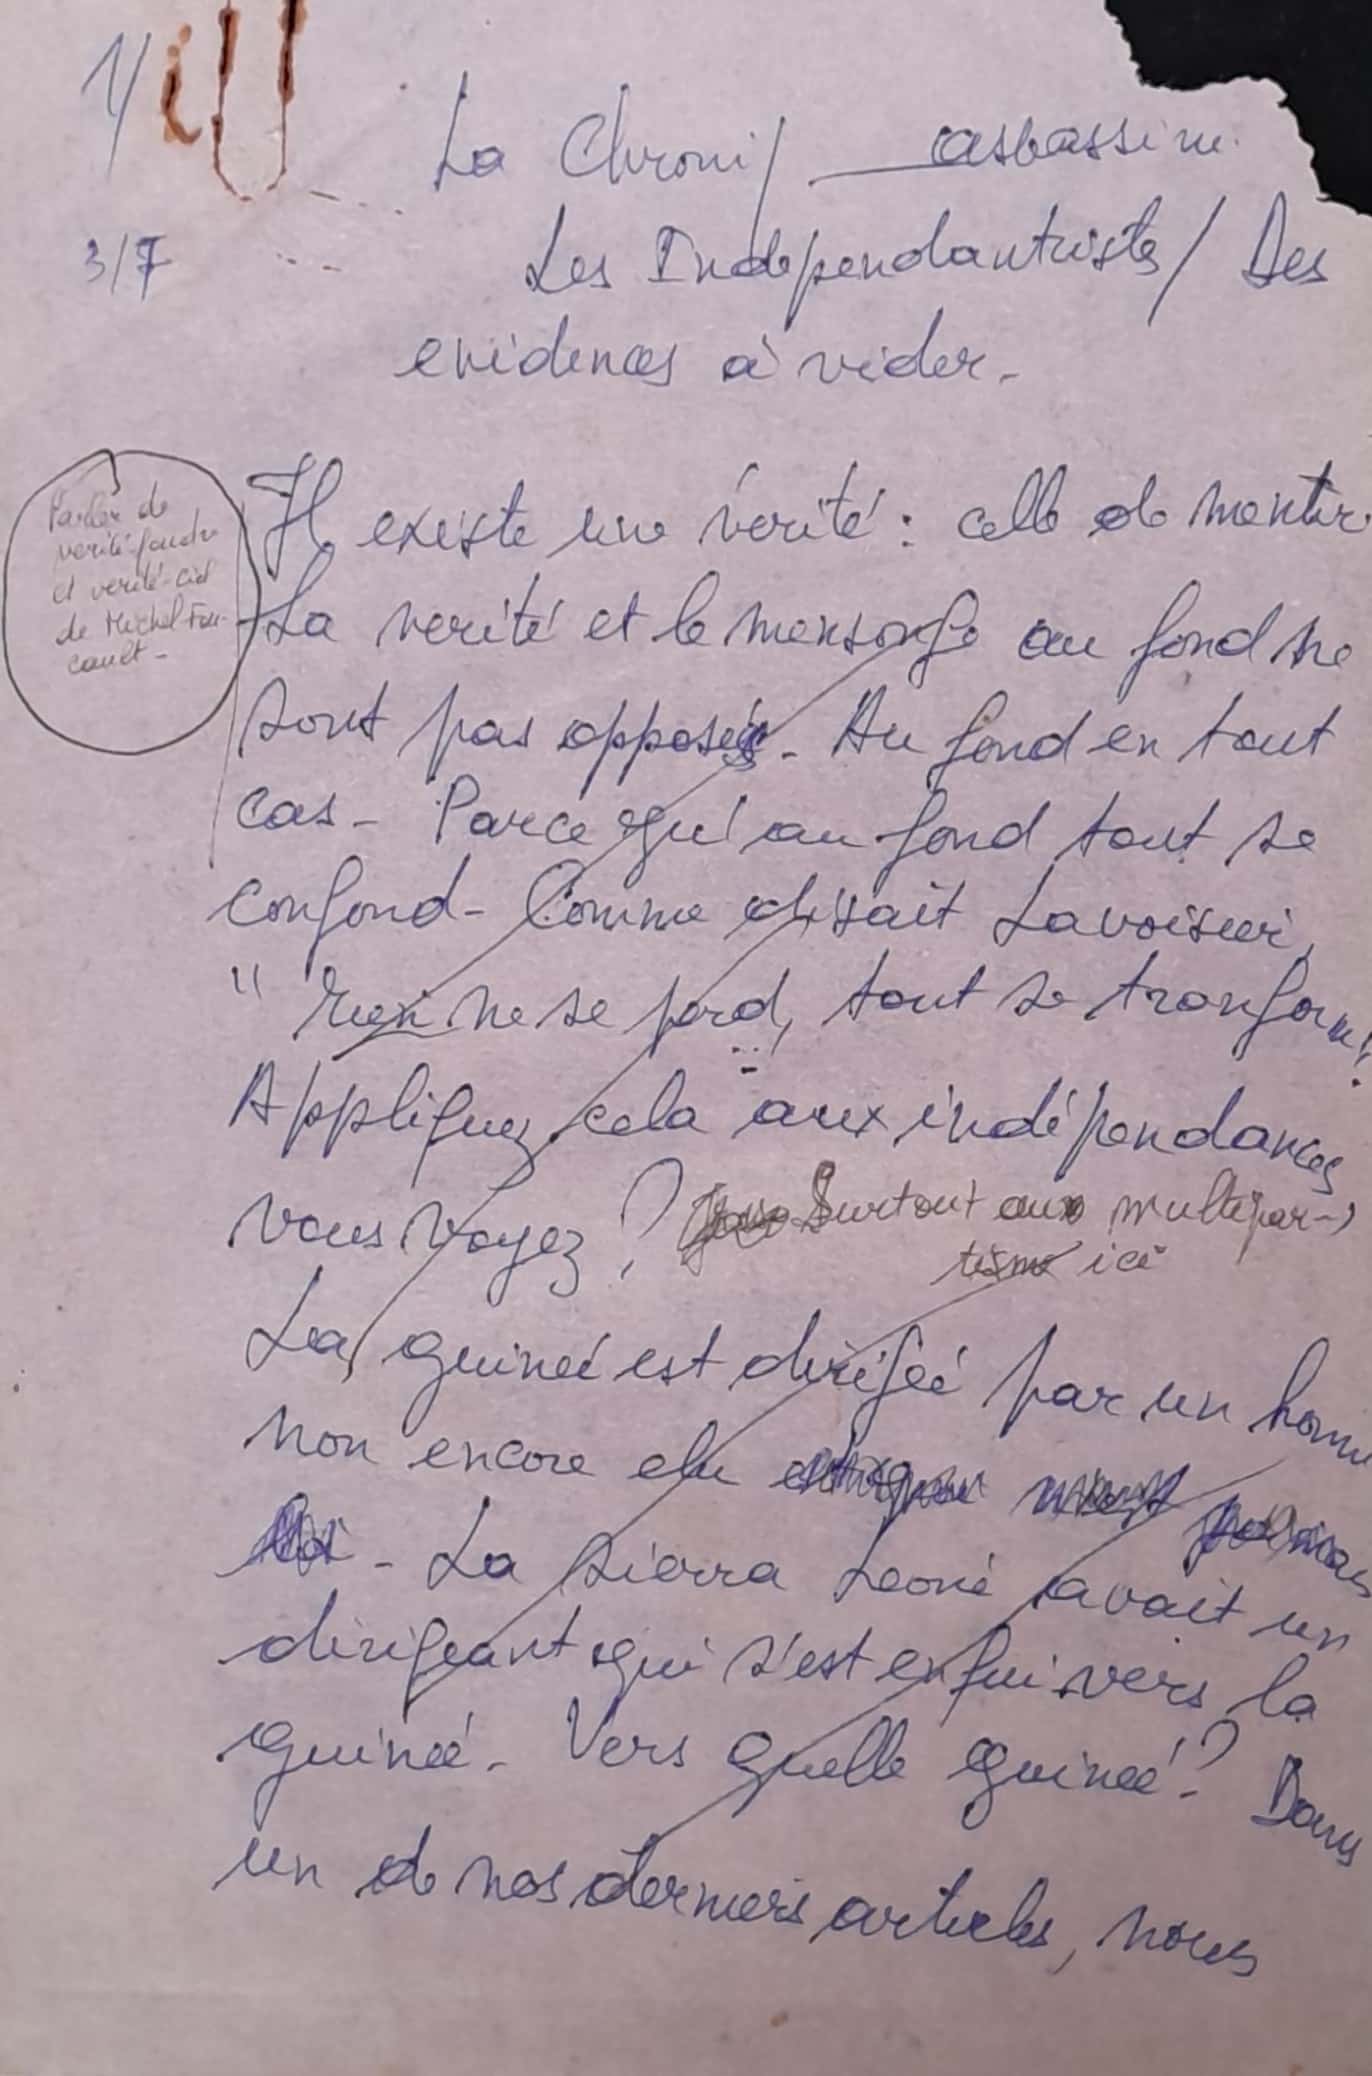 1/
La Chroni/ assassine.
3/7
Les Independantristes / Des
evidences à vider.
Parler de
verité-foudre
et verité-ciel
de Michel Fou-
cault -
Il existe une verité : celle de mentir.
La verité et le mensonge au fond ne
sont pas opposés. Au fond en tout
cas - Parce qu'au fond tout se
confond - Comme disait Lavoisier,
" rien ne se perd, tout se tranforme".
Appliquez cela aux indépendances
vous voyez ? Surtout aux multipar-
tisme ici
La guineé est dirigeé par un homme
non encore elu
- La Sierra Leoné avait un
dirigeant qui s'est enfui vers la
guineé. Vers quelle guineé ? Dans
un de nos derniers articles, nous